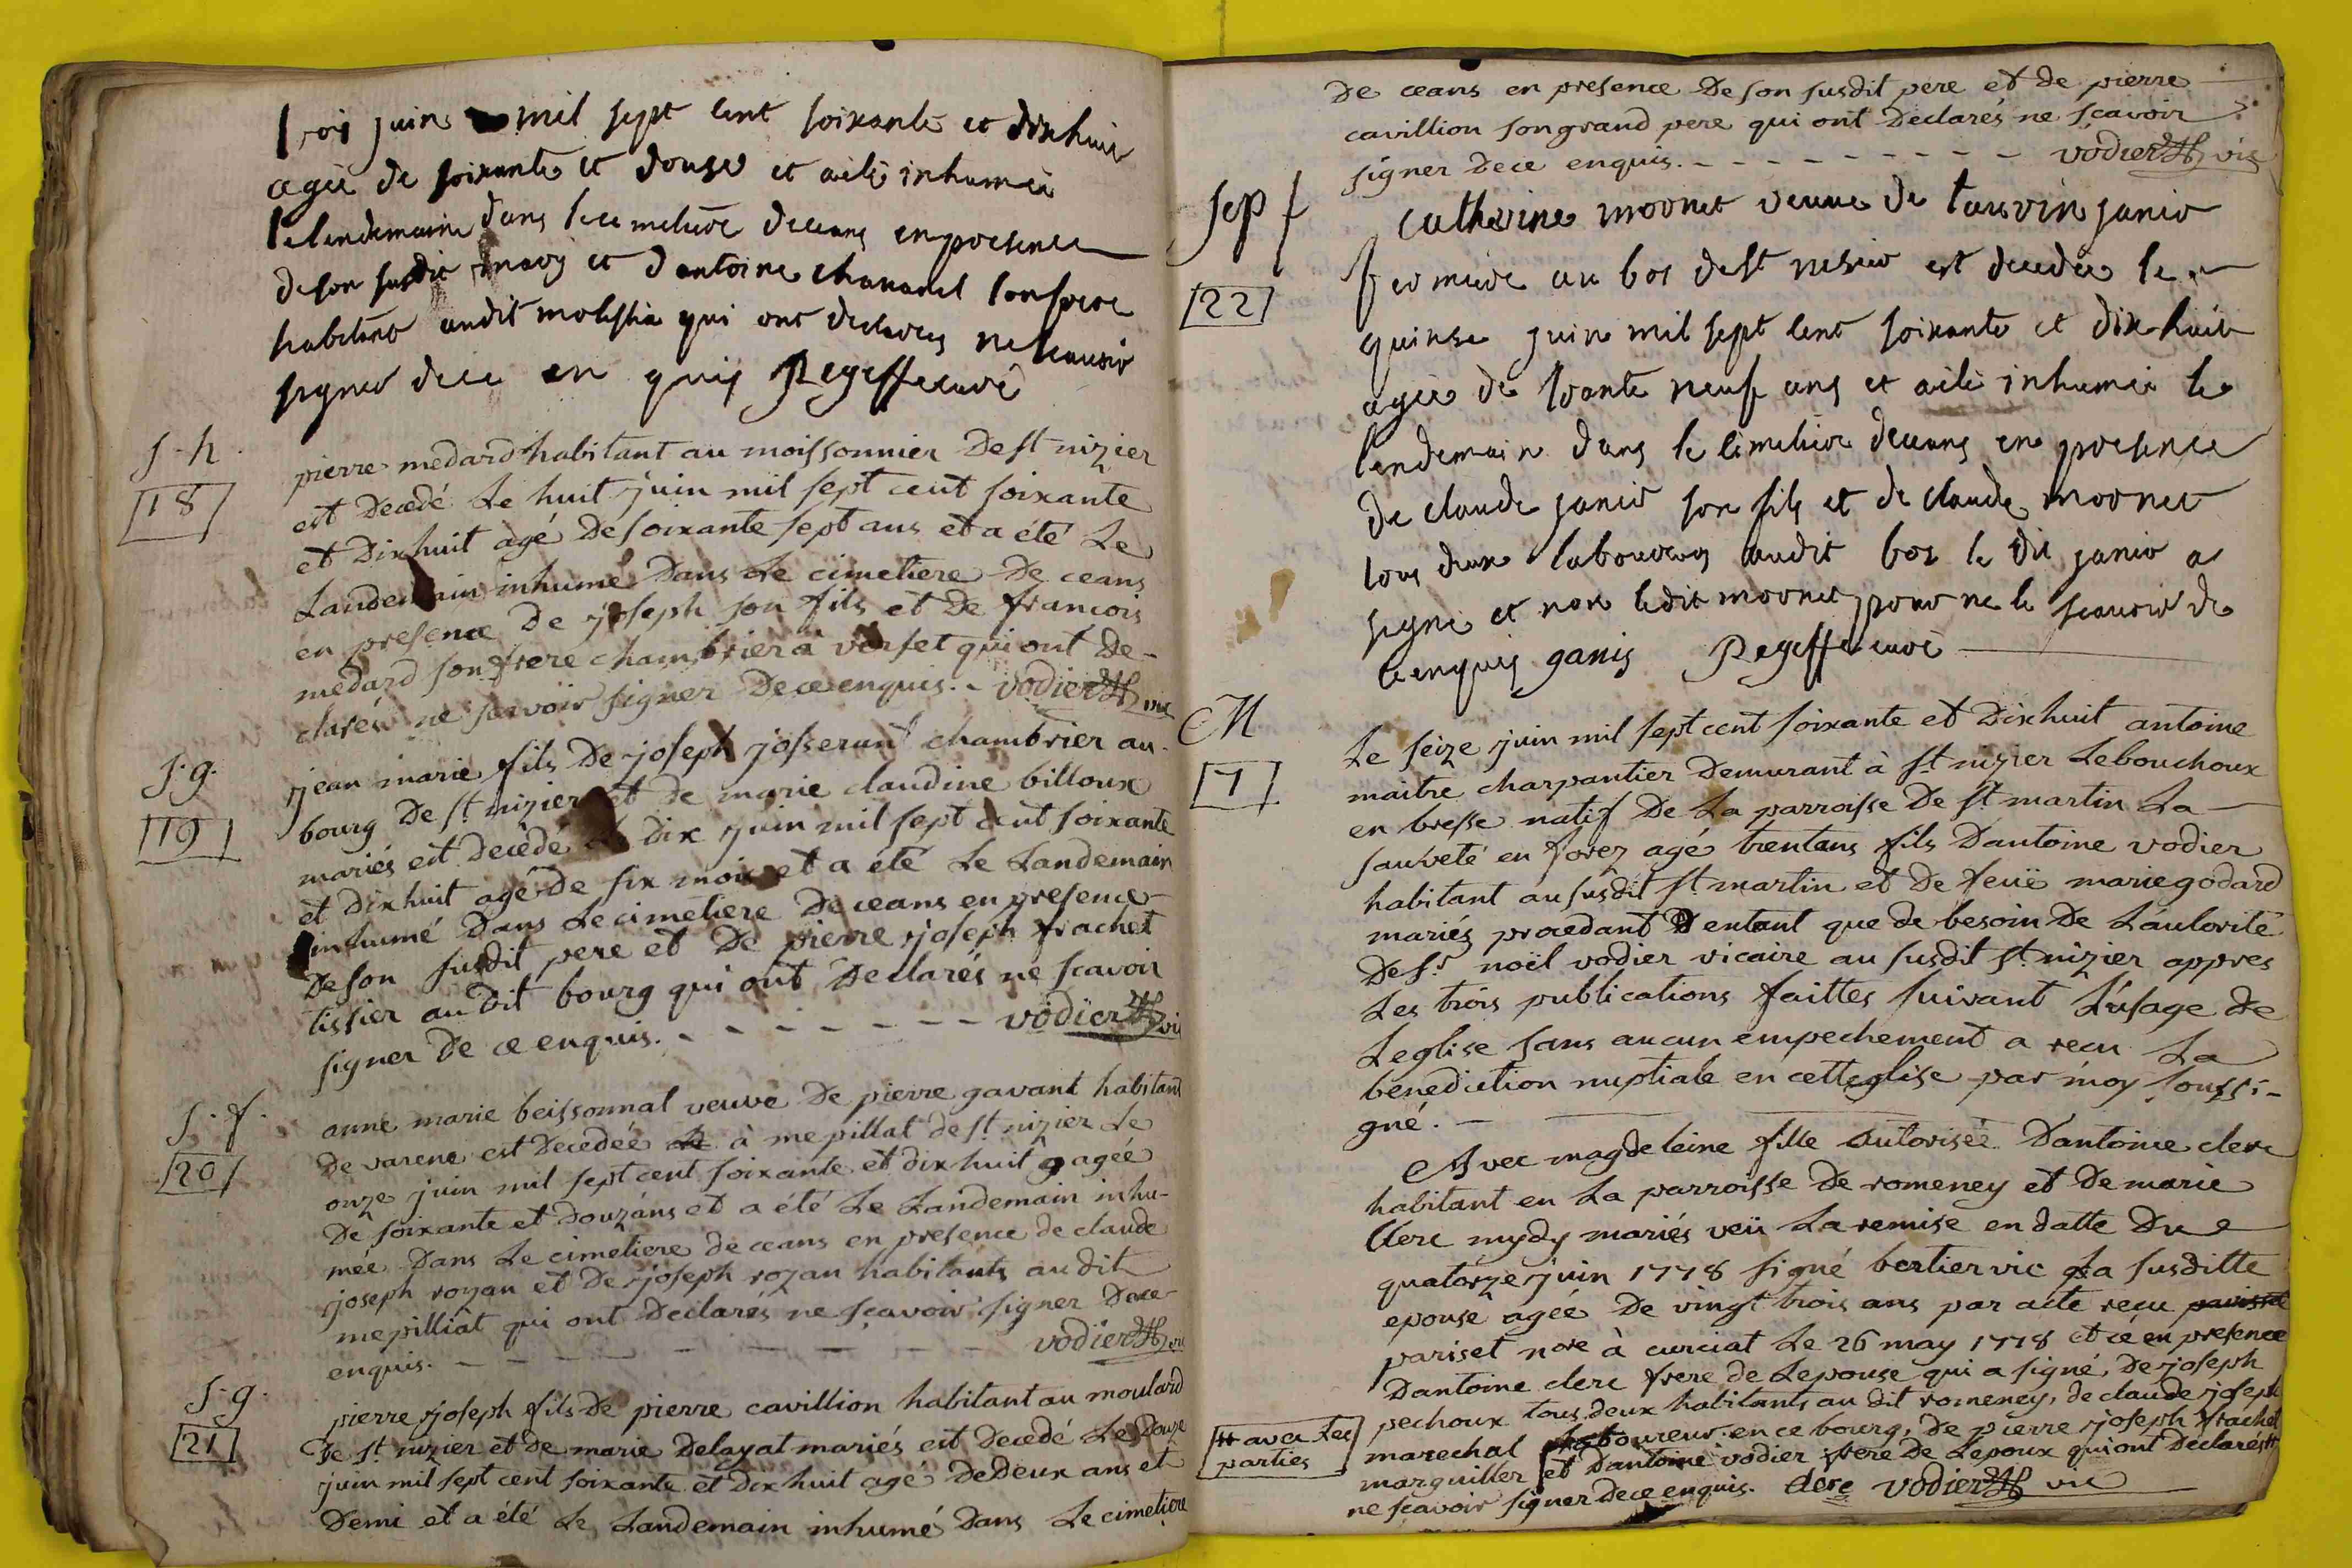 trois juin mil sept cent soixante et dixhuit
agée de soixante et douse et aété inhumée
le lendemain dans le cimetiere deceans enpresence
deson susdit mary et dantoine chavanel sonfrere
habitant audit molissia qui ont declarés nescavoir
signer dece en quis Regeffeuvre
s. h.
18
pierre medard habitant au moissonnier De st nizier
est Decedé Le huit juin mil sept cent soixante
et Dixhuit agé De soixante sept ans et a été Le
Landemain inhumé Dans Le cimetiere De ceans
en presence De joseph son fils et De francois
medard son frere chambrier à varset qui ont De-
clarés ne scavoir signer Dece enquis. - vodier vic
s. g.
19
jean marie fils De joseph josserant chambrier au
bourg De st nizier et de marie claudine billoux
mariés est decédé Le dix juin mil sept cent soixante
et Dixhuit agé De six mois et a été Le Landemain
inhumé Dans Le cimetiere De ceans en presence
De son susdit pere et De pierre joseph frachet
tissier au Dit bourg qui ont Declarés ne scavoir
signer De ce enquis. - - - - - - - vodier vic
s. f.
20
anne marie beissonnal veuve De pierre gavant habitant
De varene est Decedée à mepillat de st nizier Le
onze juin mil sept cent soixante et dix huit agée
De soixante et Douzans et a été Le Landemain inhu-
mée Dans Le cimetiere de ceans en presence de claude
joseph royan et De joseph royan habitants au dit
mepilliat qui ont Declarés ne scavoir signer Dece
enquis. - - - - - - - - - vodier vic
s. g.
21
pierre joseph fils De pierre cavillion habitant au moulard
De st nizier et de marie Delayat mariés est Decedé Le Douze
juin mil sept cent soixante et Dix huit agé De Deux ans et
Demi et a été Le Landemain inhumé Dans Le cimetiere
De ceans en presence De son susdit pere et de pierre
cavillion son grand pere qui ont Declarés ne scavoir
signer Dece enquis. - - - - - - - - vodier vic
sep f
22
catherine mornet veuve de tauvin janio
fermiere au bos dest nisier est decedée le
quinse juin mil sept cent soixante et dix huit
agée de soante neuf ans et aété inhumée le
lendemain dans le cimetiere deceans en presence
de claude janio son fils et de claude mornet
tous deux laboureurs audit bos le dit janio a
signé et non ledit mornet pour ne le scavoir de
ce enquis ganis Regeffeuvre
M
7
Le seize juin mil sept cent soixante et Dixhuit antoine
maitre charpantier Demurant à st nizier Lebouchoux
en bresse natif De La parroisse De st martin La
sauveté en forez agé trentans fils Dantoine vodier
habitant au susdit st martin et De feuë marie godard
mariés procedant D entant que de besoin De Laulorité
De sr noël vodier vicaire au susdit st nizier appres
Les trois publications faittes suivant L'usage De
Leglise sans aucun empechement a recu La
benediction nuptiale en cetteglise par moy soussi-
gné. -
Avec magdeleine fille autorisée Dantoine clerc
habitant en La parroisse De romeney et De marie
Clerc mydy mariés veü La remise en datte Du
quatorze juin 1778 signé bertier vic La susditte
epouse agée De vingt trois ans par acte recu parisset
pariset nore à curciat Le 26 may 1778 et ce en presence
Dantoine clerc frere de Lepouse qui a signé, De joseph
pechoux tous deux habitants au dit romeney, de claude joseph
marechal laboureur en ce bourg, De pierre joseph frachet
marguiller et Dantoine vodier frere De Lepoux qui ont Declarés
avec Les
parties
ne scavoir signer Dece enquis. clerc vodier vic